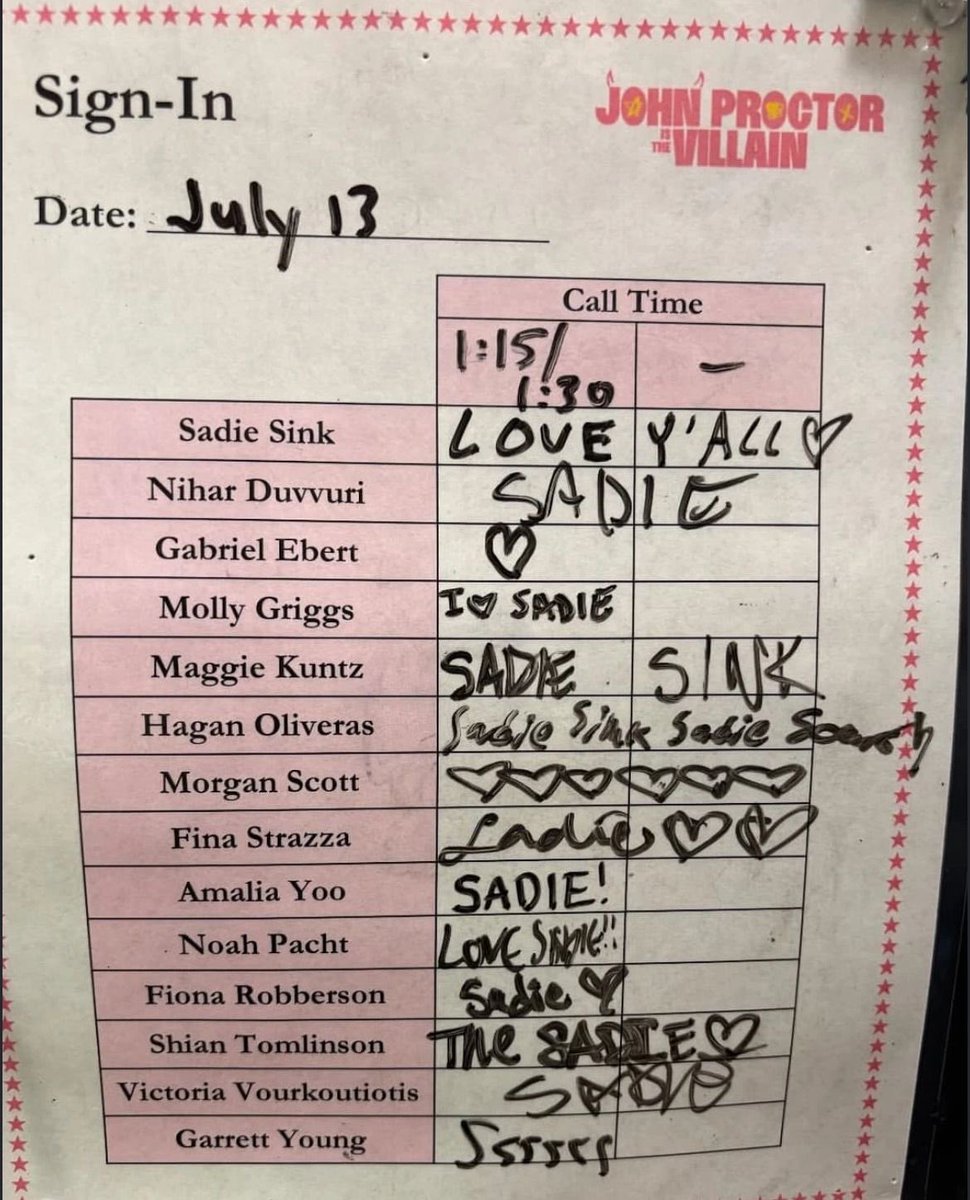 Sign-In
JOHN PROCTOR
IS THE VILLAIN
Date: July 13
Call Time
1:15/ –
1:30
Sadie Sink LOVE Y'ALL ♡
Nihar Duvvuri SADIE
Gabriel Ebert ♡
Molly Griggs I ♡ SADIE
Maggie Kuntz SADIE SINK
Hagan Oliveras Sadie Sink Sadie
Morgan Scott ♡♡♡♡♡♡
Fina Strazza Sadie ♡♡
Amalia Yoo SADIE!
Noah Pacht LOVE SADIE!!
Fiona Robberson Sadie ♡
Shian Tomlinson THE SADIE ♡
Victoria Vourkoutiotis
Garrett Young Ssssss